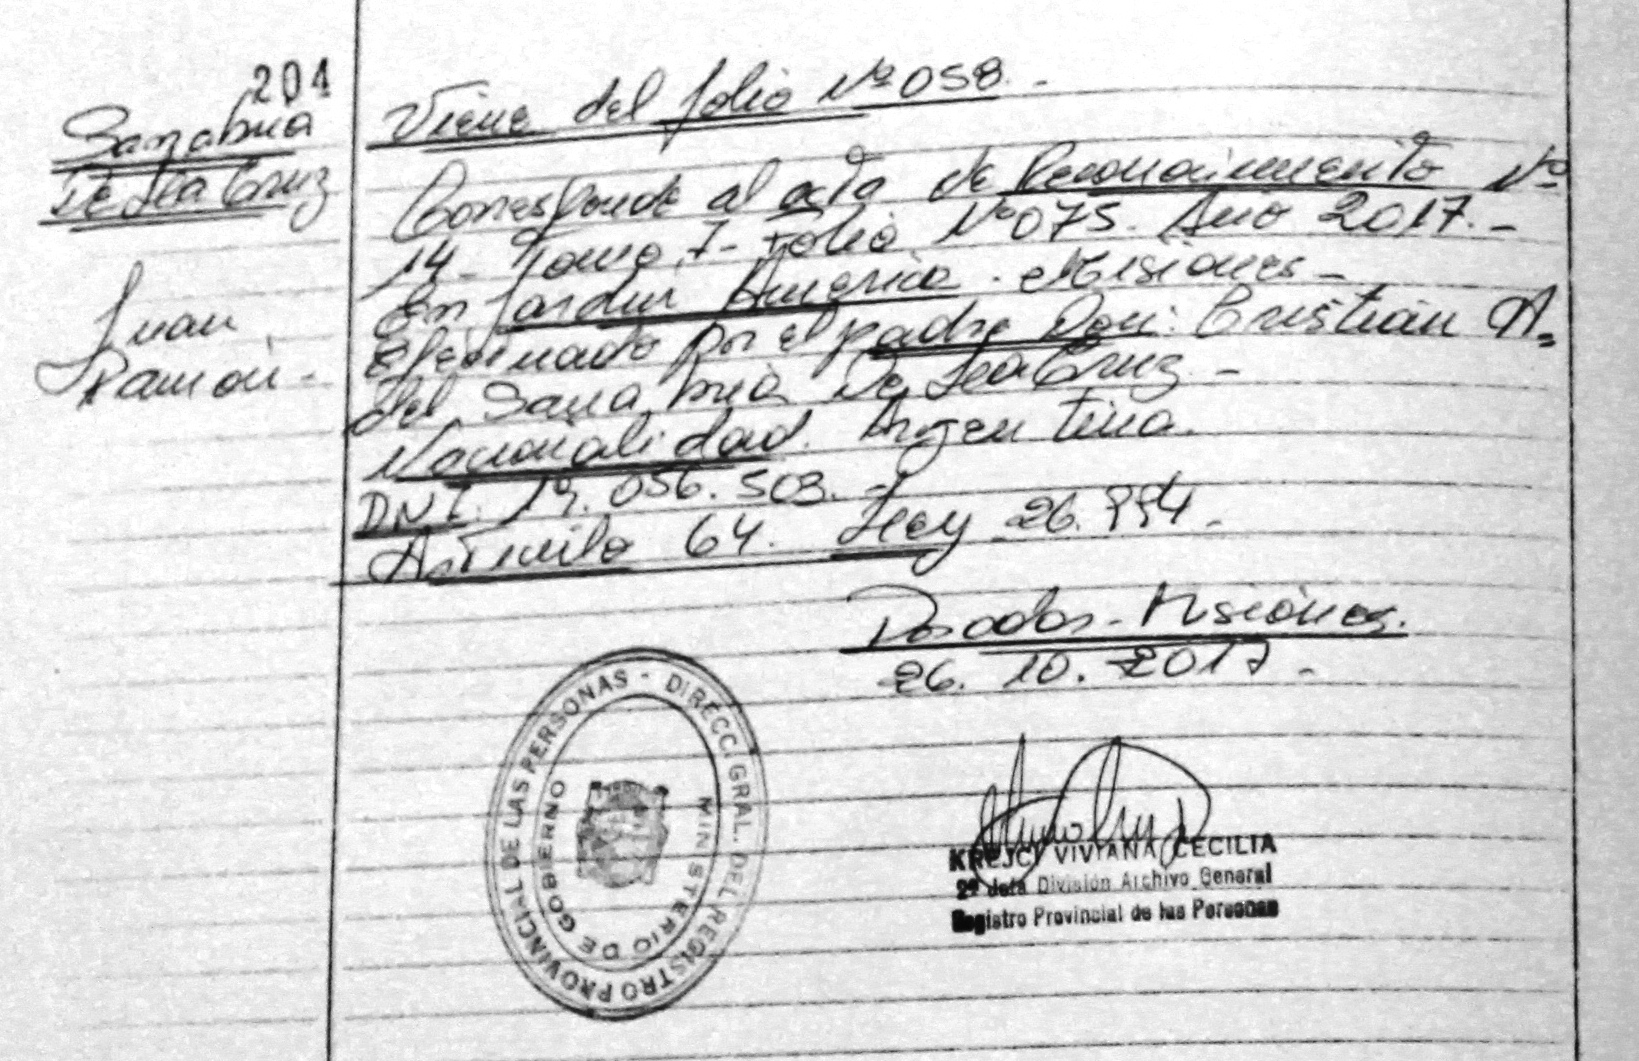 204
Sanabria
De La Cruz
Juan
Ramón.-
Viene del folio Nº 058.-
Corresponde al acta de Reconocimiento Nº
14- Tomo 7- Folio Nº 075. Año 2017.-
En Jardín América. Misiones-
Efectuado por el padre Don: Cristian A=
del Sanabria De La Cruz-
Nacionalidad. Argentina.
DNI. 19.056.503.-
Artículo 64. Ley 26.994.
Posadas- Misiones.
26. 10. 2017.-
DIRECC. GRAL. DEL REGISTRO PROVINCIAL DE LAS PERSONAS -
MINISTERIO DE GOBIERNO
KREJCI VIVIANA CECILIA
2ª Jefa División Archivo General
Registro Provincial de las Personas